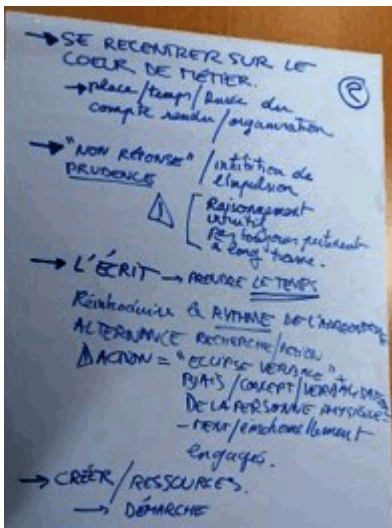 → SE RECENTRER SUR LE
COEUR DE MÉTIER.
②
→ place/temps/durée du
compte rendu/organisation
→ "NON RÉPONSE" / inhibition de
PRUDENCE l'impulsion
⚠ Raisonnement
intuitif
pas toujours pertinent
à long terme.
→ L'ÉCRIT → PRENDRE LE TEMPS
Réintroduire le RYTHME DE L'APPRENTISSAGE
ALTERNANCE RECHERCHE/ACTION
ACTION = "ECLIPSE VERBALE" +
BIAIS/CONCEPT/VERBALISATION
DE LA PERSONNE PHYSIQUE-
-MENT/émotionnellement
engagés.
→ CRÉER/RESSOURCES.
→ DÉMARCHE